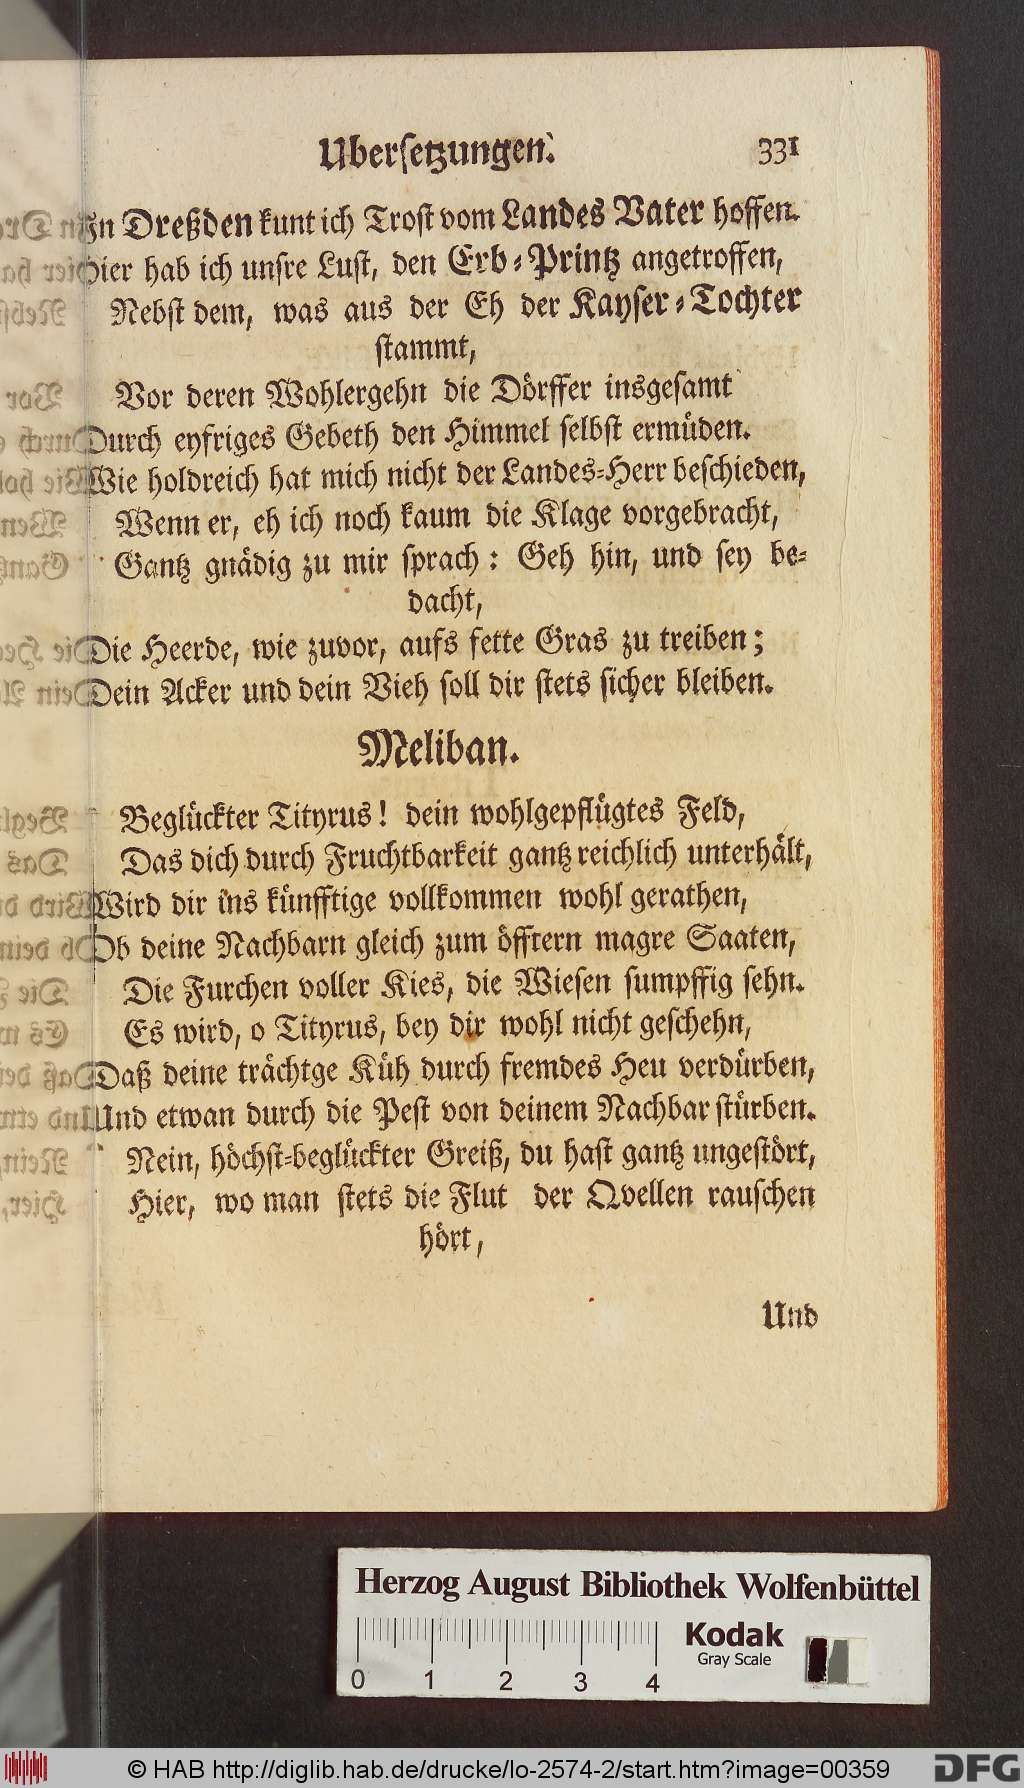 Ubersetzungen. 331
In Dreßden kunt ich Trost vom Landes Vater hoffen.
Hier hab ich unsre Lust, den Erb-Printz angetroffen,
Nebst dem, was aus der Eh der Kayser-Tochter
stammt,
Vor deren Wohlergehn die Dörffer insgesamt
Durch eyfriges Gebeth den Himmel selbst ermüden.
Wie holdreich hat mich nicht der Landes-Herr beschieden,
Wenn er, eh ich noch kaum die Klage vorgebracht,
Gantz gnädig zu mir sprach: Geh hin, und sey be-
dacht,
Die Heerde, wie zuvor, aufs fette Gras zu treiben;
Dein Acker und dein Vieh soll dir stets sicher bleiben.
Meliban.
Beglückter Tityrus! dein wohlgepflügtes Feld,
Das dich durch Fruchtbarkeit gantz reichlich unterhält,
Wird dir ins künfftige vollkommen wohl gerathen,
Ob deine Nachbarn gleich zum öfftern magre Saaten,
Die Furchen voller Kies, die Wiesen sumpffig sehn.
Es wird, o Tityrus, bey dir wohl nicht geschehn,
Daß deine trächtge Küh durch fremdes Heu verdürben,
Und etwan durch die Pest von deinem Nachbar stürben.
Nein, höchst-beglückter Greiß, du hast gantz ungestört,
Hier, wo man stets die Flut der Qvellen rauschen
hört,
Und
Herzog August Bibliothek Wolfenbüttel
Kodak
Gray Scale
0 1 2 3 4
© HAB http://diglib.hab.de/drucke/lo-2574-2/start.htm?image=00359
DFG